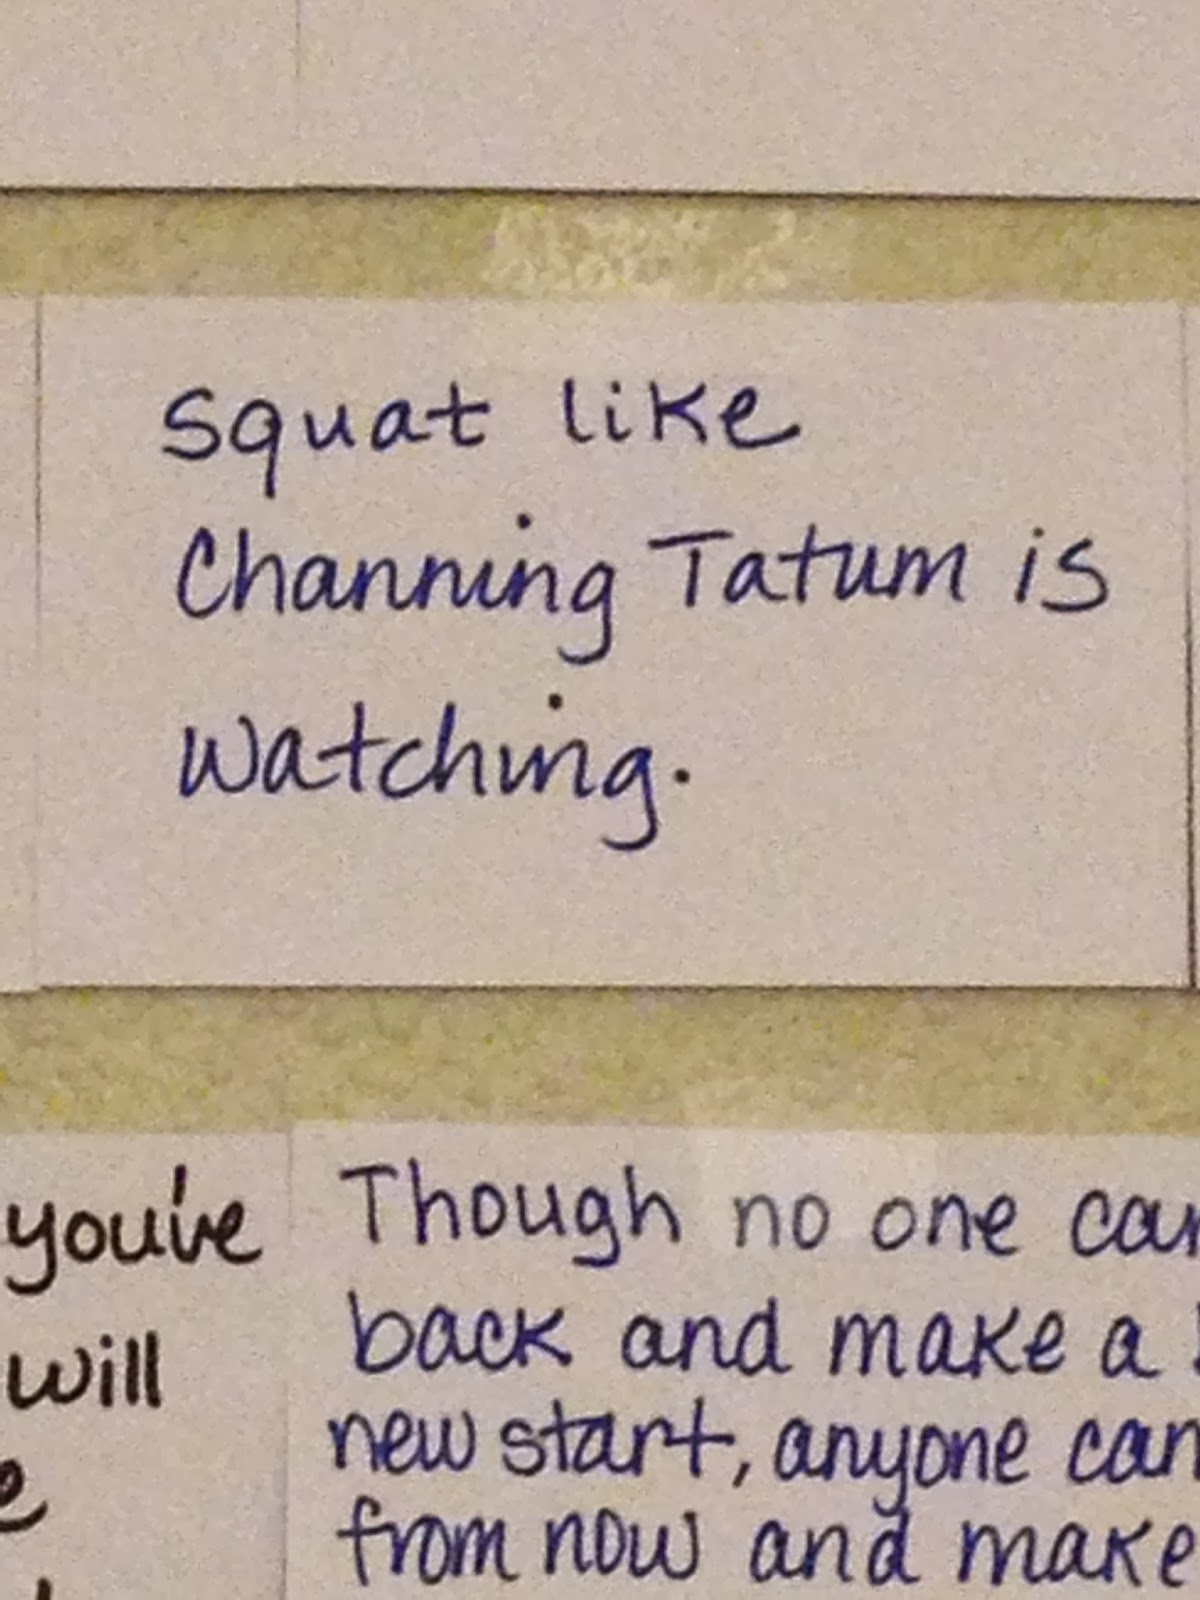 squat like
Channing Tatum is
Watching.
you've
will
Though no one
back and make a
new start, anyone can
from now and make